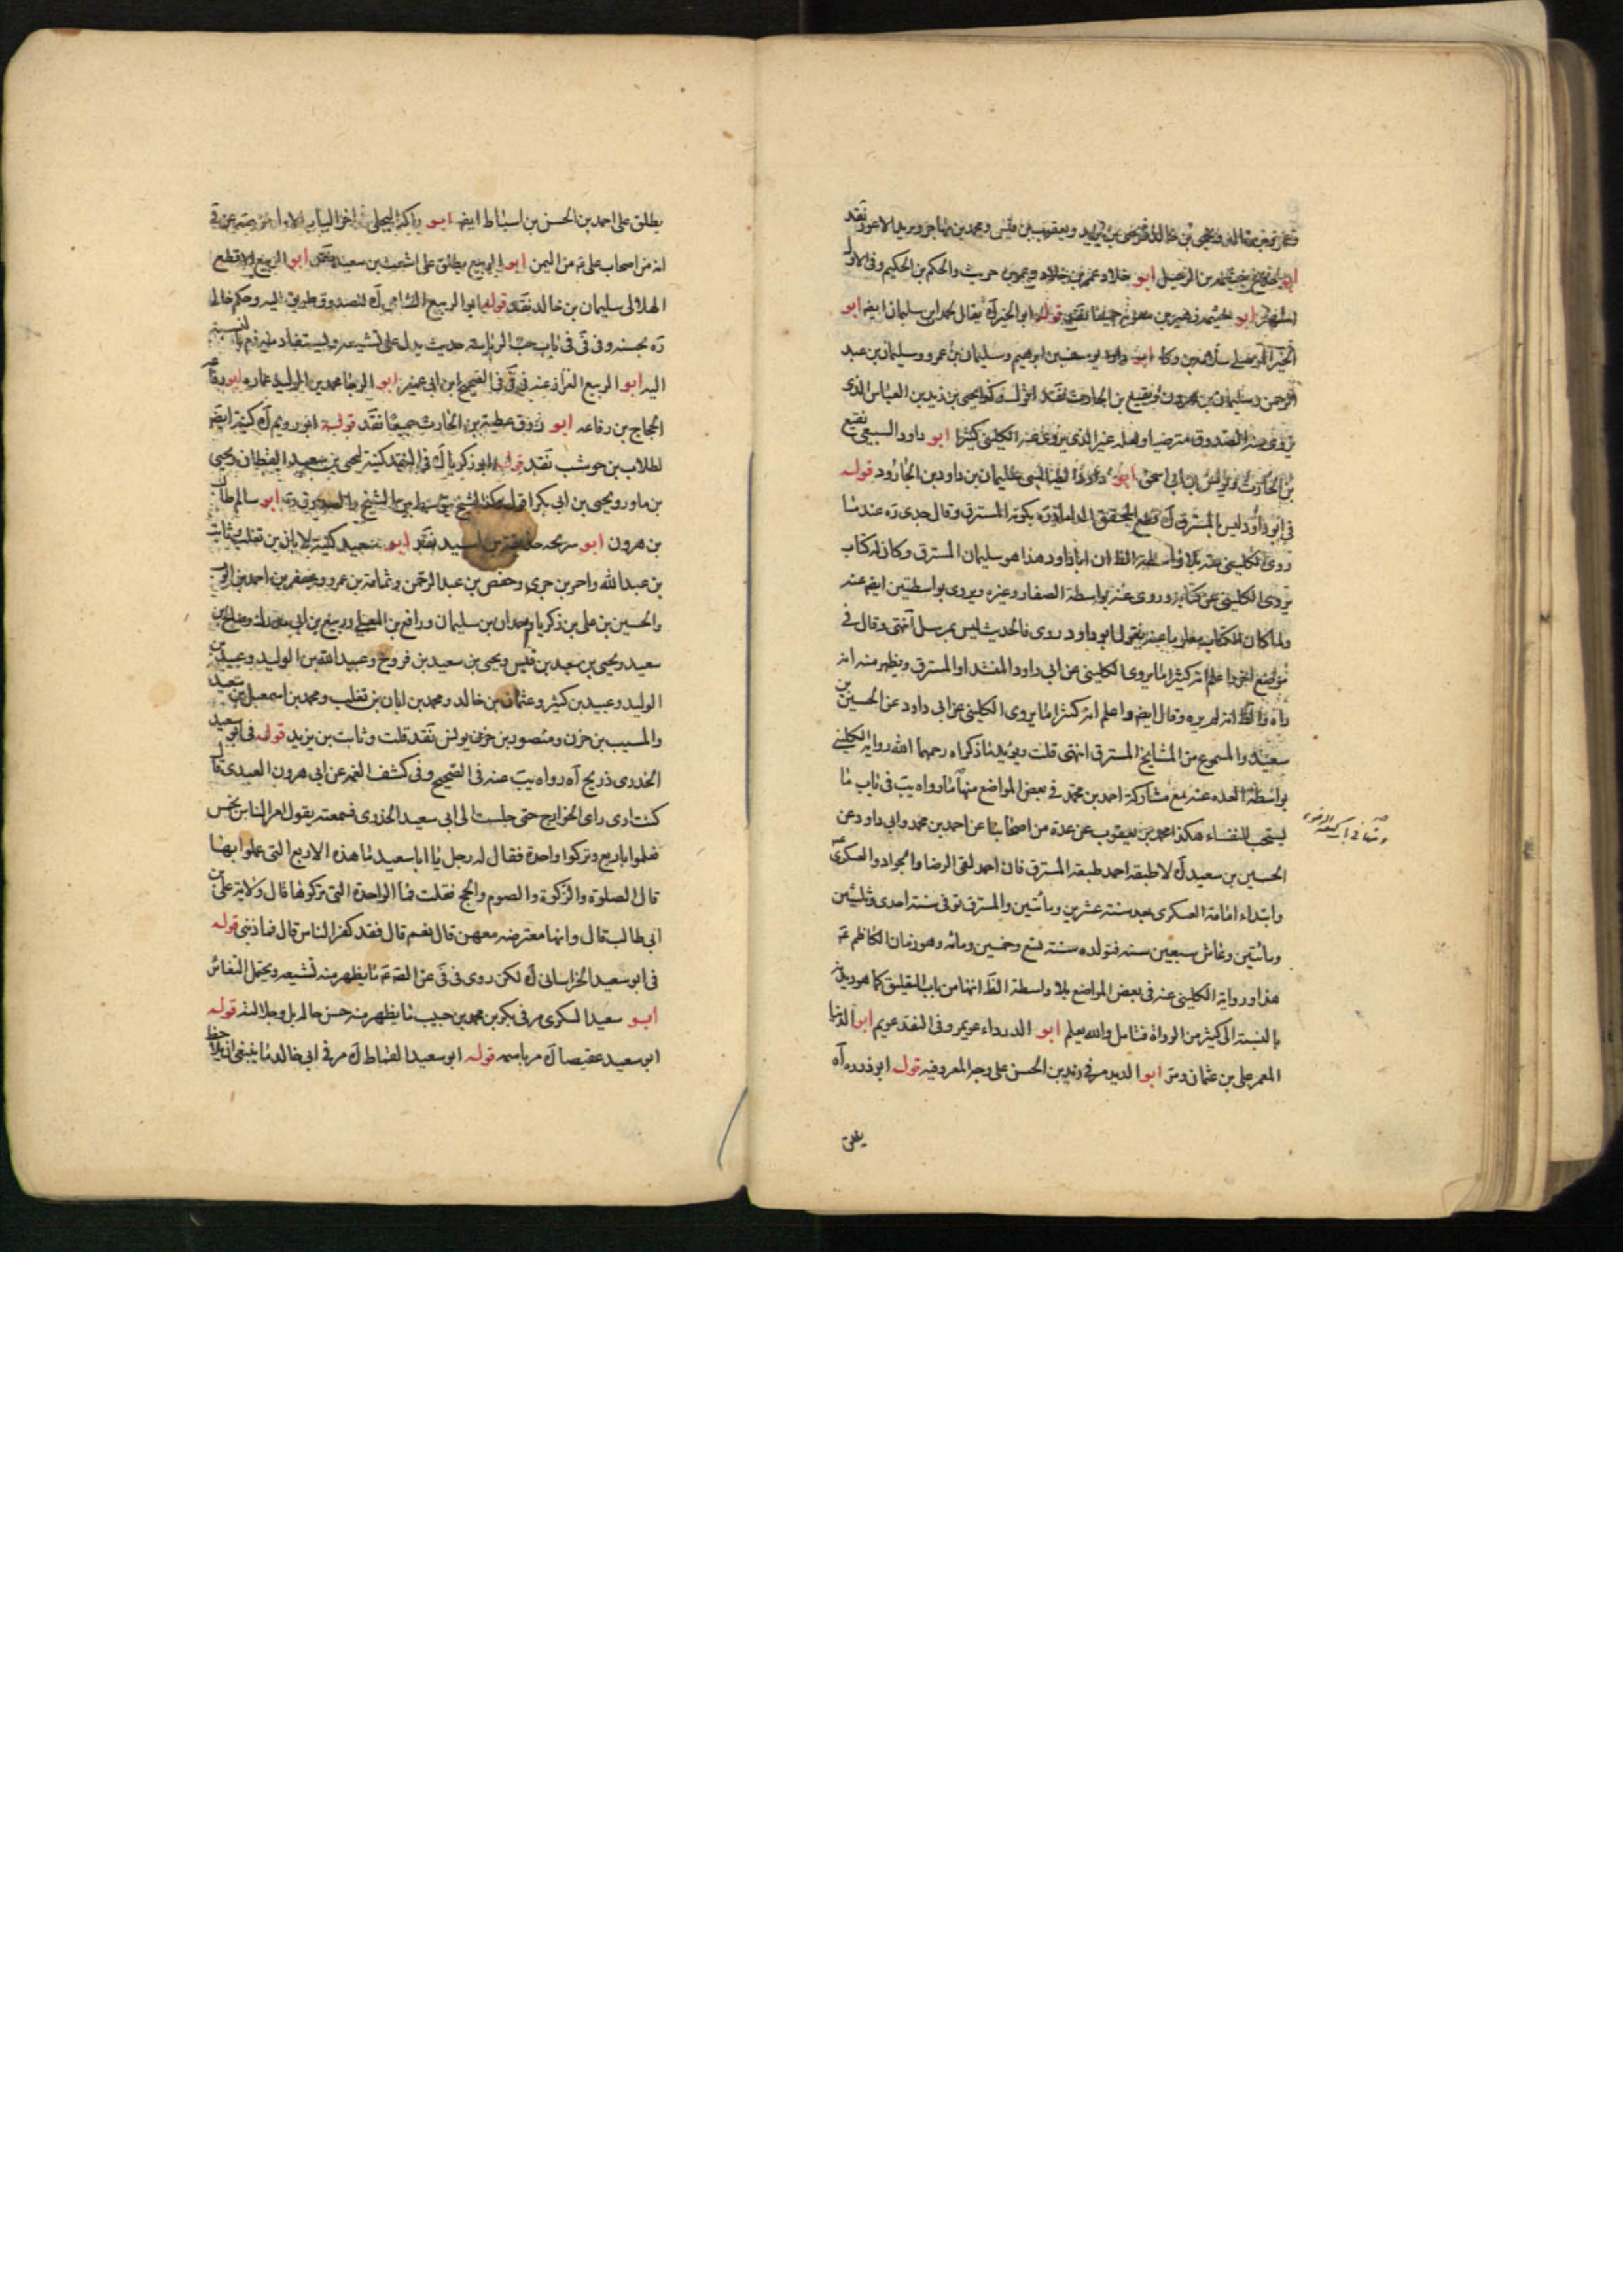 وعمر بن خالد ويحيى بن خالد ويحيى بن يزيد ويعقوب بن قيس ومحمد بن مهاجر ويزيد الاعور نقد
ابو خلاد عمرو بن خلاد وعمرو بن حريث والحكم بن الحكيم وفي الاول
اشهر ابو خيثمه زهير بن معوية جميعا نقد قوله ابو الخير آه يقال لحمدان سليمان ايضا ابو
ابو داود يوسف بن ابرهيم وسليمان بن عمرو وسليمان بن عبد
الرحمن وسليمان بن هرون ونفيع بن الحارث نقد اقول وكذا يحيى بن زيد بن العباس الذي
يروي عنه الصدوق مترضيا ولعله غير الذي يروي عنه الكليني كثيرا ابو داود السبيعي نفيع
بن الحارث ويونس بن ابي اسحق ابو داود الطيالسي سليمان بن داود بن الجارود قوله
في ابو داود ليس بالمسترق آه قطع المحقق الداماد ره بكونه المسترق وقال جدي ره عندما
روى الكليني عنه بلا واسطة الظ ان ابا داود هذا هو سليمان المسترق وكان له كتاب
يروي الكليني عن كتابه وروى عنه بواسطة الصفار وغيره ويروي بواسطتين ايضا عنه
ولما كان الكتاب معلوما عنده يقول ابو داود روى فالحديث ليس بمرسل انتهى وقال في
مواضع اخر واعلم انه كثيرا ما يروي الكليني عن ابي داود المنشد او المسترق ويظهر منه انه
رآه والظ انه لم يره وقال ايضا واعلم انه كثيرا ما يروي الكليني عن ابي داود عن الحسين بن
سعيد والمسموع من المشايخ المسترق انتهى قلت ويؤيد ما ذكراه رحمهما الله رواية الكليني
بواسطة العده عنه مع مشاركة احمد بن محمد في بعض المواضع منها ما رواه يب في باب ما
يستحب للنفساء هكذا محمد بن يعقوب عن عدة من اصحابنا عن احمد بن محمد وابي داود عن
الحسين بن سعيد آه لا طبقه احمد طبقه المسترق فان احمد لقى الرضا والجواد والعسكري
وابتداء امامة العسكري بعد سنة عشرين ومأتين والمسترق توفي سنة احدى وثلثين
ومأتين وعاش سبعين سنه فتولده سنة تسع وخمسين ومائه وهو زمان الكاظم ع
هذا ورواية الكليني عنه في بعض المواضع بلا واسطة الظ انها من باب التعليق كما هو ديدنه
بالنسبة الى كثير من الرواة فتامل والله يعلم ابو الدرداء عويمر وفي النقد عويم ابو الدنيا
المعمر علي بن عثمان ومر ابو الديدم مر في زيد بن الحسن على وجه المعروفيه قوله ابو ذر ره آه
يطلق
يطلق على احمد بن الحسن بن اسباط ايضا ابو راكة البجلي اخر الباب الاول
انه من اصحاب علي ع من اليمن ابو الربيع يطلق على اشعث بن سعيد نقد ابو الربيع الاقطع
الهلالي سليمان بن خالد نقد قوله ابو الربيع الشامي آه للصدوق طريق اليه وحكم خالي
ره بحسنه وفي في باب حب الرياسة حديث يدل على تشيعه ويستفاد منه ذم بالنسبة
اليه ابو الربيع القزاز عنه في الصحيح ابن ابي عمير ابو الرضا محمد بن الوليد عماره ابو رفاعه
الحجاج بن رفاعه ابو روق عطية بن الحارث جميعا نقد قوله ابو رويم آه كنية ايضا
لطلاب بن حوشب نقد قوله ابو زكريا آه في النقد كنية ليحيى بن سعيد القطان ويحيى
بن مساور ويحيى بن ابي بكر ابو سالم طالب
بن هرون ابو سريحه حذيفة بن اسيد نقد ابو سعيد كنية لابان بن تغلب وثابت
بن عبد الله واحمر بن جري وحفص بن عبد الرحمن وثمامة بن عمرو وجعفر بن احمد بن ايوب
والحسين بن علي بن زكريا وحمدان بن سليمان ورافع بن المعلى وربيع بن ابي مدرك
سعيد ويحيى بن سعيد بن قيس ويحيى بن سعيد بن فروخ وعبيد الله بن الوليد وعبيد بن
الوليد وعبيد بن كثير وعثمان بن خالد ومحمد بن ابان بن تغلب ومحمد بن اسمعيل بن سعيد
والمسيب بن حزن ومنصور بن حزم يونس نقد قلت وثابت بن يزيد قوله في ابو سعيد
الخدري ذريح آه رواه يب عنه في الصحيح وفي كشف الغمه عن ابي هرون العبدي قال
كنت ارى راي الخوارج حتى جلست الى ابي سعيد الخدري فسمعته يقول امر الناس بخمس
فعلوا باربع وتركوا واحدة فقال له رجل يا ابا سعيد ما هذه الاربع التي عملوا بها
قال الصلوة والزكوة والصوم والحج فقلت فما الواحدة التي تركوها قال ولاية علي بن
ابي طالب قال وانها معترضه معهن قال نعم قال فقد كفر الناس قال فما ذنبي قوله
في ابو سعيد الخراساني آه لكن روى في في عن الضا ع ما يظهر منه تشيعه ويحتمل التغاير
ابو سعيد السكري مر في بكر بن محمد بن حبيب ما يظهر منه حسن حاله بل وجلالته قوله
ابو سعيد عقيصا آه مر باسمه قوله ابو سعيد القماط آه مر في ابي خالد ما ينبغي ان يلاحظ